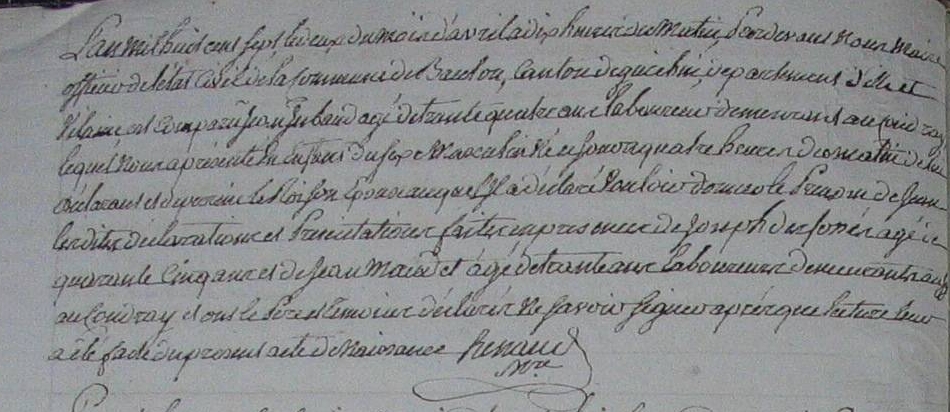 L'an mil huit cent sept le deux du mois d'avril a dix heures du matin, Pardevant nous maire
officier de l'état civil de la commune de Baulon, canton de guichen, département d'ille et
Vilaine est comparu Jean agé de trante quatre ans laboureur demeurant au Coudray
lequel nous a présenté un enfant du sexe masculin né ce jour a quatre heures du matin de lui
déclarant et de son Epouse auquel il a déclaré vouloir donner le Prénom de Jean
les dites déclaration et Présentation faites en présence de Joseph agé de
quarante cinq ans et de Jean agé de trante ans laboureurs demeurants
au Coudray et ont le Pere et temoins déclaré ne savoir signer après que lecture leur
a été faite du present acte de Naissance Renaud
mre